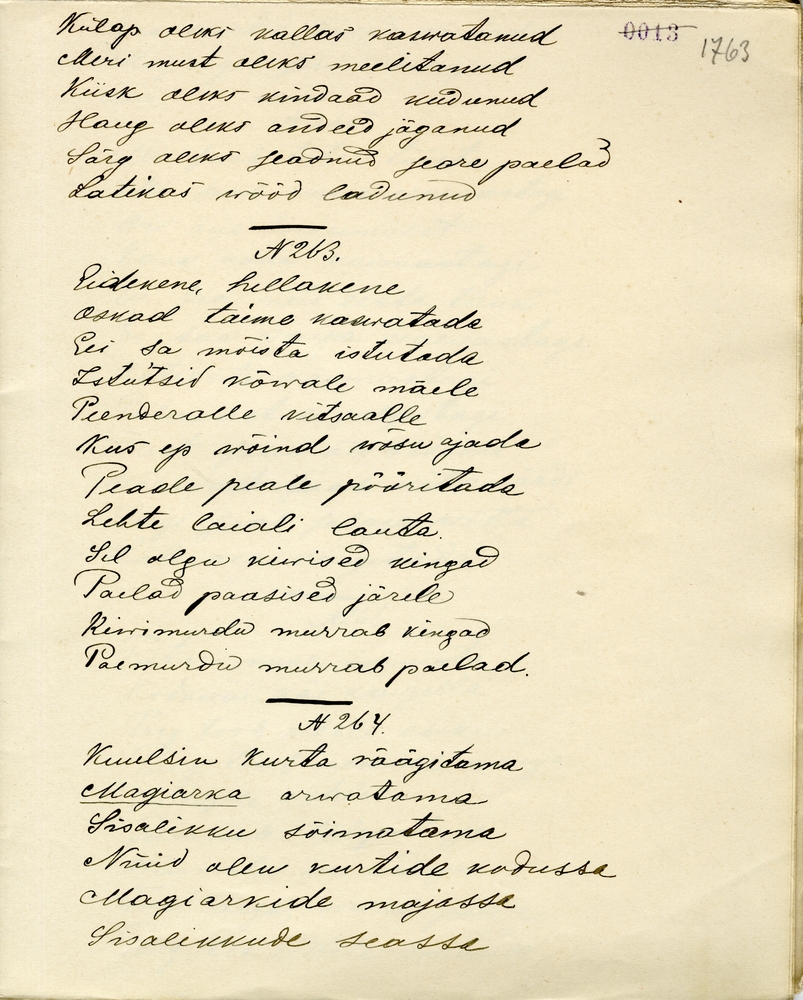 0013
1763
Külap oleks kallas kaswatanud
Meri must oleks meelitanud
Kiisk oleks kindaad kudunud
Haug oleks anded jäganud
Särg oleks seadnud seare paelad
Latikas wööd ladunud
N 263.
Eidekene, hellakene
Oskad taime kaswatada
Ei sa mõista istutada
Istutsid kõwale mäele
Peenderalle kitsaalle
Kus ep wõind wõsu ajada
Peade peale pööritada
Lehte laiali lauta.
Sel olgu kiwised kingad
Paelad paasised järele
Kiwimurdu murrab kingad
Paemurdu murrab paelad.
N 264.
Kuulsin kurta räägitama
Magiarka arwatama
Sisalikku sõimatama
Nüüd olen kurtide kodussa
Magiarkide majassa
Sisalikkude seassa